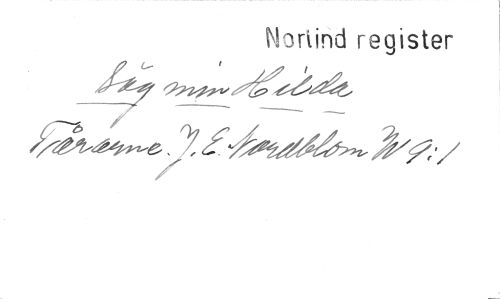 Norlind register
Säg min Hilda
Tårarne. J. E. Nordblom W 9:1